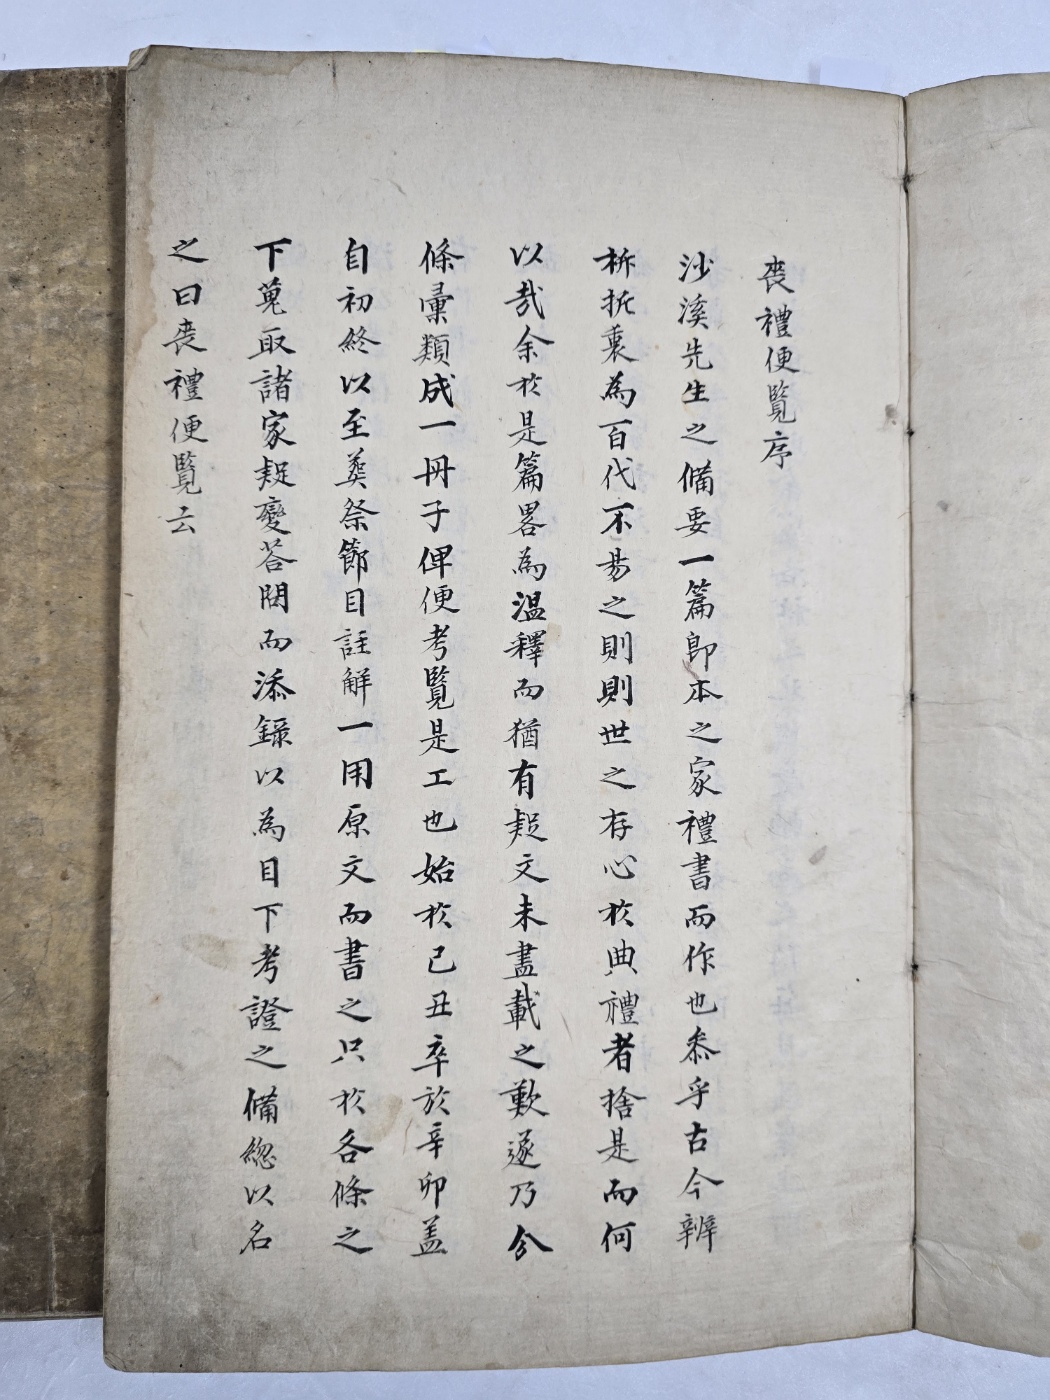 喪禮便覽序
沙溪先生之備要一篇卽本之家禮書而作也叅乎古今辨
柝折衷為百代不易之則則世之存心於典禮者捨是而何
以哉余於是篇畧為溫釋而猶有疑文未盡載之歎遂乃分
條彙類成一冊子俾便考覽是工也始於己丑卒於辛卯盖
自初終以至葬祭節目註解一用原文而書之只於各條之
下蒐取諸家疑變答問而添錄以為目下考證之備總以名
之曰喪禮便覽云